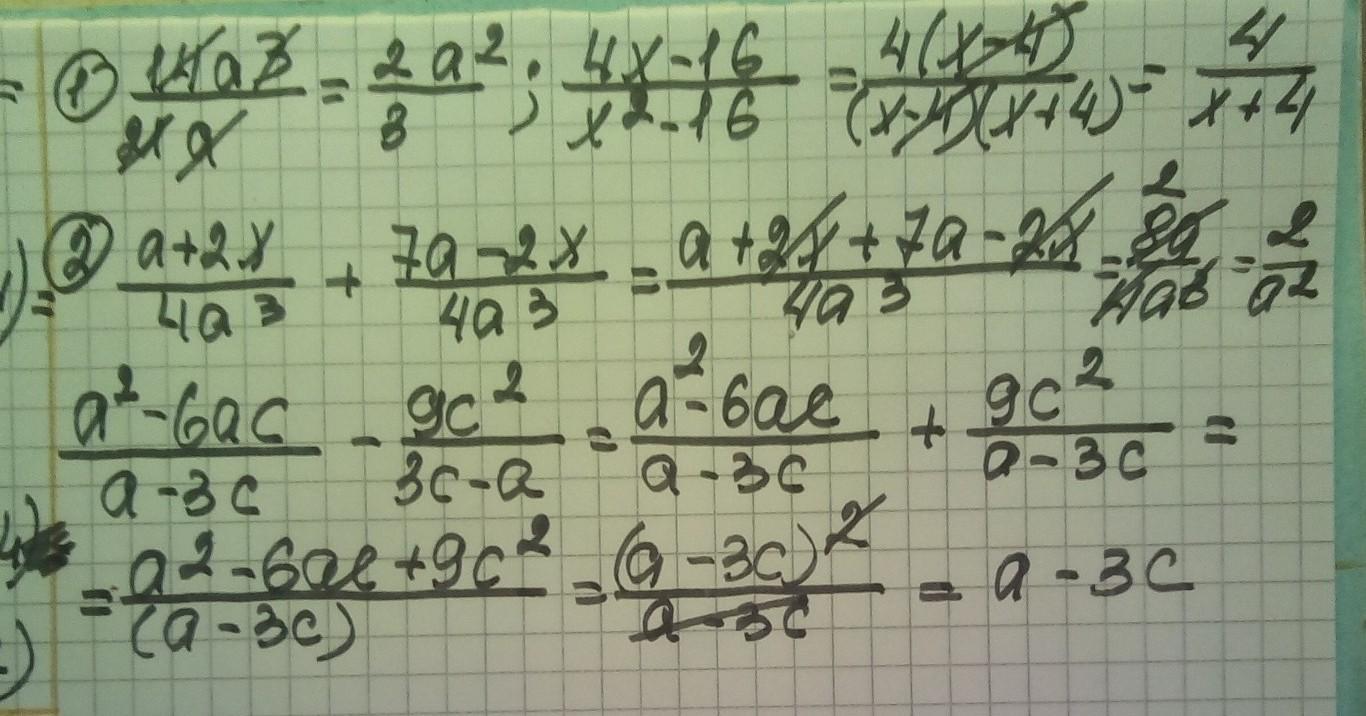 = ① 14a³/21a = 2a²/3 ; 4x-16/x²-16 = 4(x-4)/(x-4)(x+4) = 4/x+4
)= ② a+2x/4a³ + 7a-2x/4a³ = a+2x+7a-2x/4a³ = 2 8a/4a³ = 2/a²
a²-6ac/a-3c - 9c²/3c-a = a²-6ac/a-3c + 9c²/a-3c =
4) = a²-6ac+9c²/(a-3c) = (a-3c)²/a-3c = a-3c
)